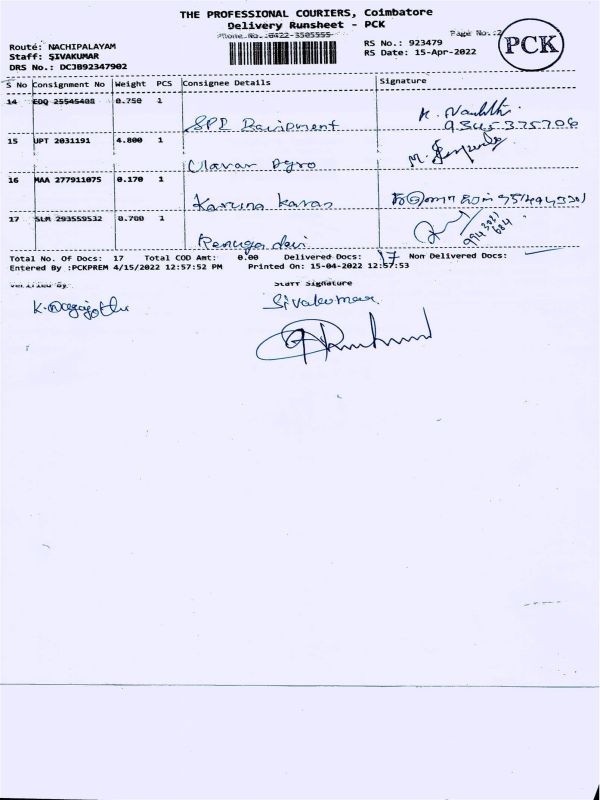 THE PROFESSIONAL COURIERS, Coimbatore
Delivery Runsheet - PCK
Phone No.:0422-3505555
Page No.:2
PCK
Route: NACHIPALAYAM
Staff: SIVAKUMAR
DRS No.: DCJB92347902
RS No.: 923479
RS Date: 15-Apr-2022
S No Consignment No Weight PCS Consignee Details Signature
14 EDQ 25545408 0.750 1
15 UPT 2031191 4.800 1
Agro
16 MAA 277911075 0.170 1
Karuna karan
17 SLM 293559532 0.700 1
Renuga devi
Total No. Of Docs: 17 Total COD Amt: 0.00 Delivered Docs: 17 Non Delivered Docs:
Entered By :PCKPREM 4/15/2022 12:57:52 PM Printed On: 15-04-2022 12:57:53
Verified By Staff Signature
Sivakumar